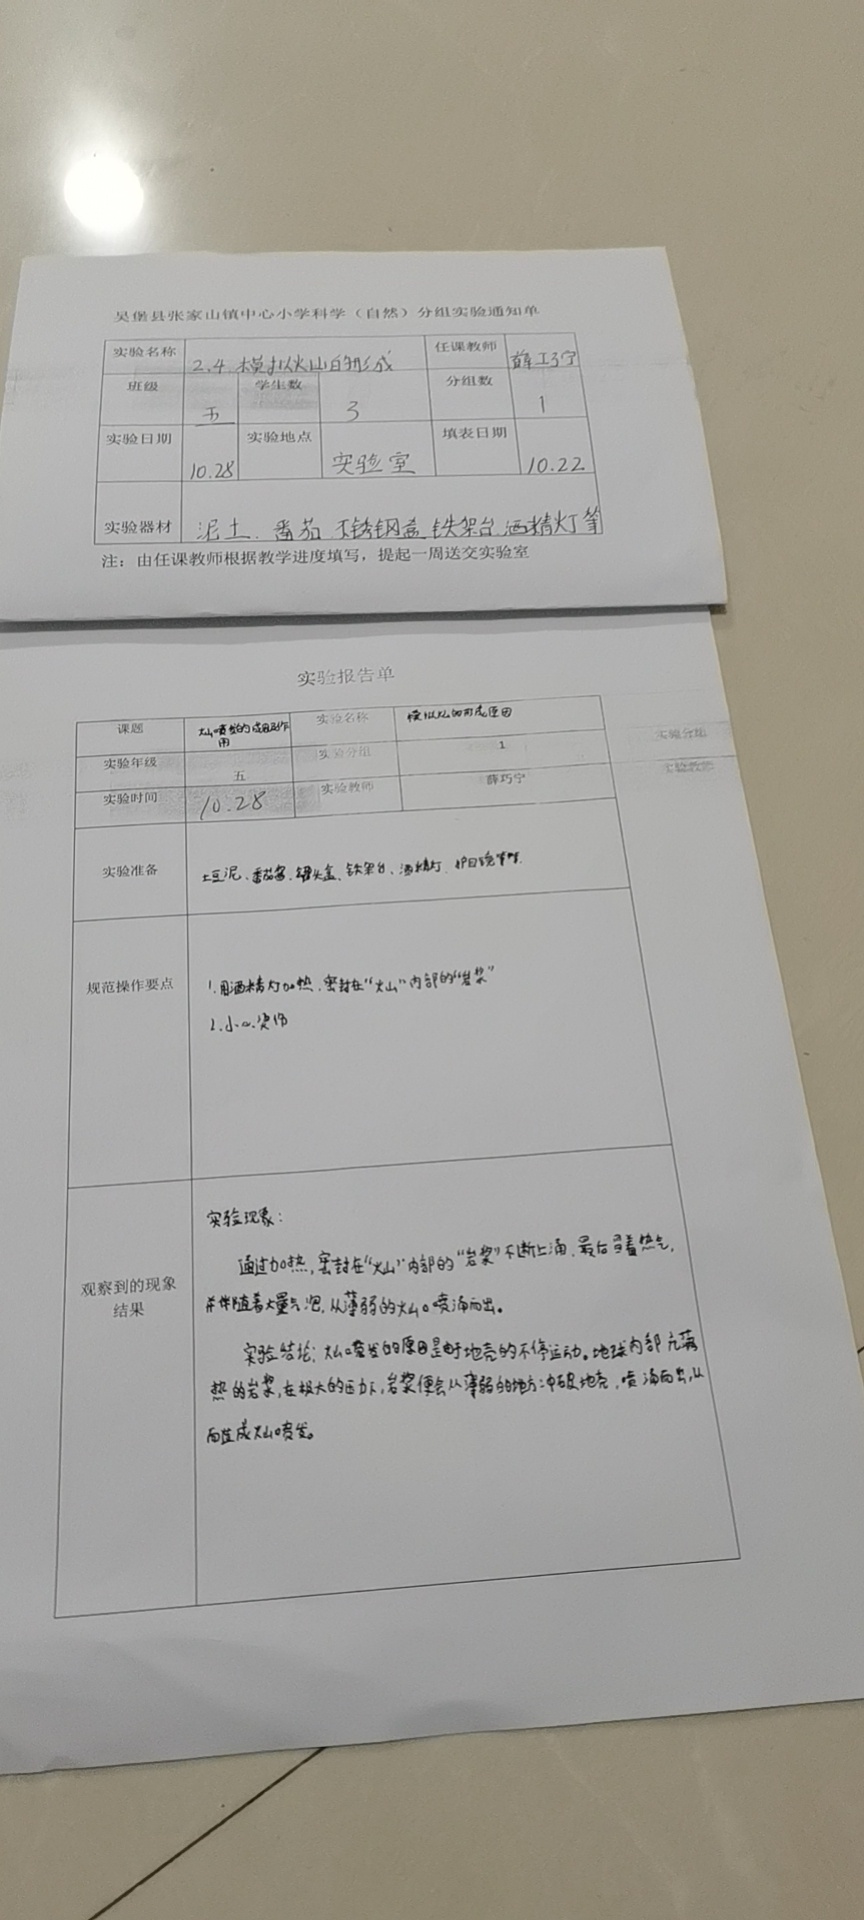 吴堡县张家山镇中心小学科学（自然）分组实验通知单
实验名称 2.4 模拟火山的形成 任课教师 薛巧宁
班级 五 学生数 3 分组数 1
实验日期 10.28 实验地点 实验室 填表日期 10.22
实验器材 泥土、番茄、不锈钢盒、铁架台、酒精灯等
注：由任课教师根据教学进度填写，提起一周送交实验室
实验报告单
课题 火山喷发的成因及作用 实验名称 模拟火山的形成原因
实验年级 五 实验分组 1 实验分组
实验时间 10.28 实验教师 薛巧宁 实验教师
实验准备 土豆泥、番茄酱、罐头盒、铁架台、酒精灯、护目镜等
规范操作要点
1.用酒精灯加热，密封在“火山”内部的“岩浆”
2.小心烫伤
观察到的现象结果
实验现象：
通过加热，密封在“火山”内部的“岩浆”不断上涌，最后冒着热气，
并伴随着大量气泡，从薄弱的火山口喷涌而出。
实验结论；火山喷发的原因是由于地壳的不停运动。地球内部充满
热的岩浆，在极大的压力下，岩浆便会从薄弱的地方冲破地壳，喷涌而出，从
而造成火山喷发。